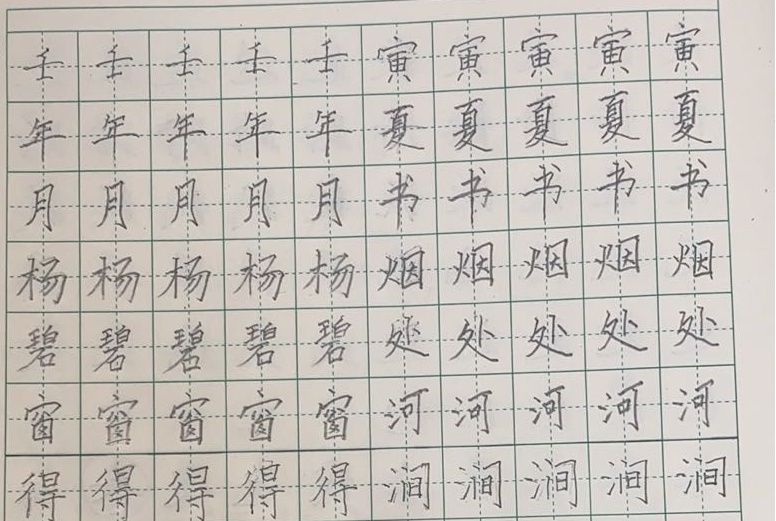 壬壬壬壬壬寅寅寅寅寅
年年年年年夏夏夏夏夏
月月月月月书书书书书
杨杨杨杨杨烟烟烟烟烟
碧碧碧碧碧处处处处处
窗窗窗窗窗河河河河河
得得得得得涧涧涧涧涧